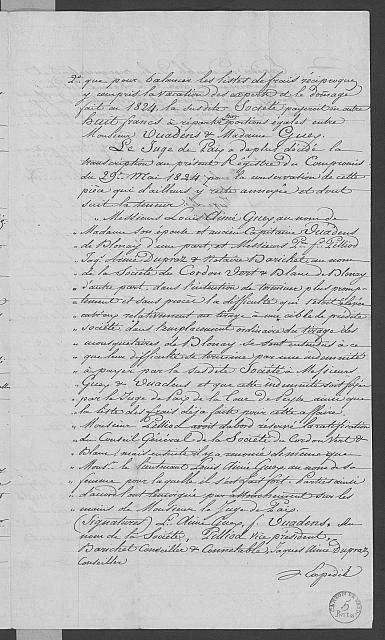 2.° que pour balancer les listes de frais réciproque
y compris la vacation des experts et le dommage
fait en 1824. la susdite Société payeront en outre
huit francs à répartir portions égales entre
Monsieur Vuadens & Madame Guex.
Le Juge de Paix a de plus décidé la
transcription au présent Régistre du Compromis
du 29.e Mai 1824 pour la conservation de cette
pièce qui d'ailleurs y reste annexée et dont
suit la teneur.
„ Messieurs Louis Aimé Guex au nom de
„ Madame son épouse et ancien Capitaine Vuadens
„ de Blonay d'une part, et Messieurs Pilliod
„ Jaq. Aimé Dupraz & Notaire Barichet au nom
„ de la Société du Cordon Vert & Blanc de Blonay
„ d'autre part, dans l'intention de terminer plus promp-
„ tement et sans procès la difficulté qui s'était
„ relativement au tirage à une cible de predite
„ Société, dans l'emplacement ordinaire du tirage des
„ mousquetaires de Blonay se sont entendus à ce
„ que leur difficulté se termine par une indemnité
„ à payer par la susdite Société à Messieurs
„ Guex & Vuadens et que cette indemnité soit fixée
„ par le Juge de Paix de la Tour de Peylz ainsi que
„ la liste des frais déjà faits pour cette affaire.
„ Monsieur Pilliod avoit d'abord réservé la ratification
„ du Conseil Général de la Société du Cordon Vert &
„ Blanc, mais ensuite il y a renoncé de même que
„ Mons.r le Lieutenant Louis Aimé Guex au nom de sa
„ femme pour laquelle il s'est fait fort. Parties ainsi
„ d'accord l'ont témoigné par attouchement sur les
„ mains de Monsieur le Juge de Paix.
(Signatures) L.s Aimé Guex, Vuadens. Au
nom de la Société, Pilliod vice président,
Barichet Conseiller & Connetable, Jaques Aimé Dupraz
Conseiller